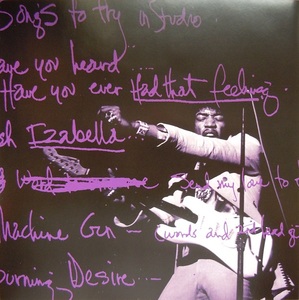 Songs to try in Studio
Have you heard
Have you ever Had that feeling.
Izabella
Send my love to
Machine Gun — (words and
Burning Desire —